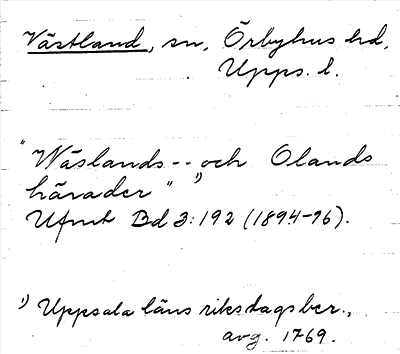 Västland, sn, Örbyhus hd,
Upps. l.
"Wäslands -- och Olands
härader" 1)
Ufmt Bd 3:192 (1894-96).
1) Uppsala läns riksdagsber.,
avg. 1769.